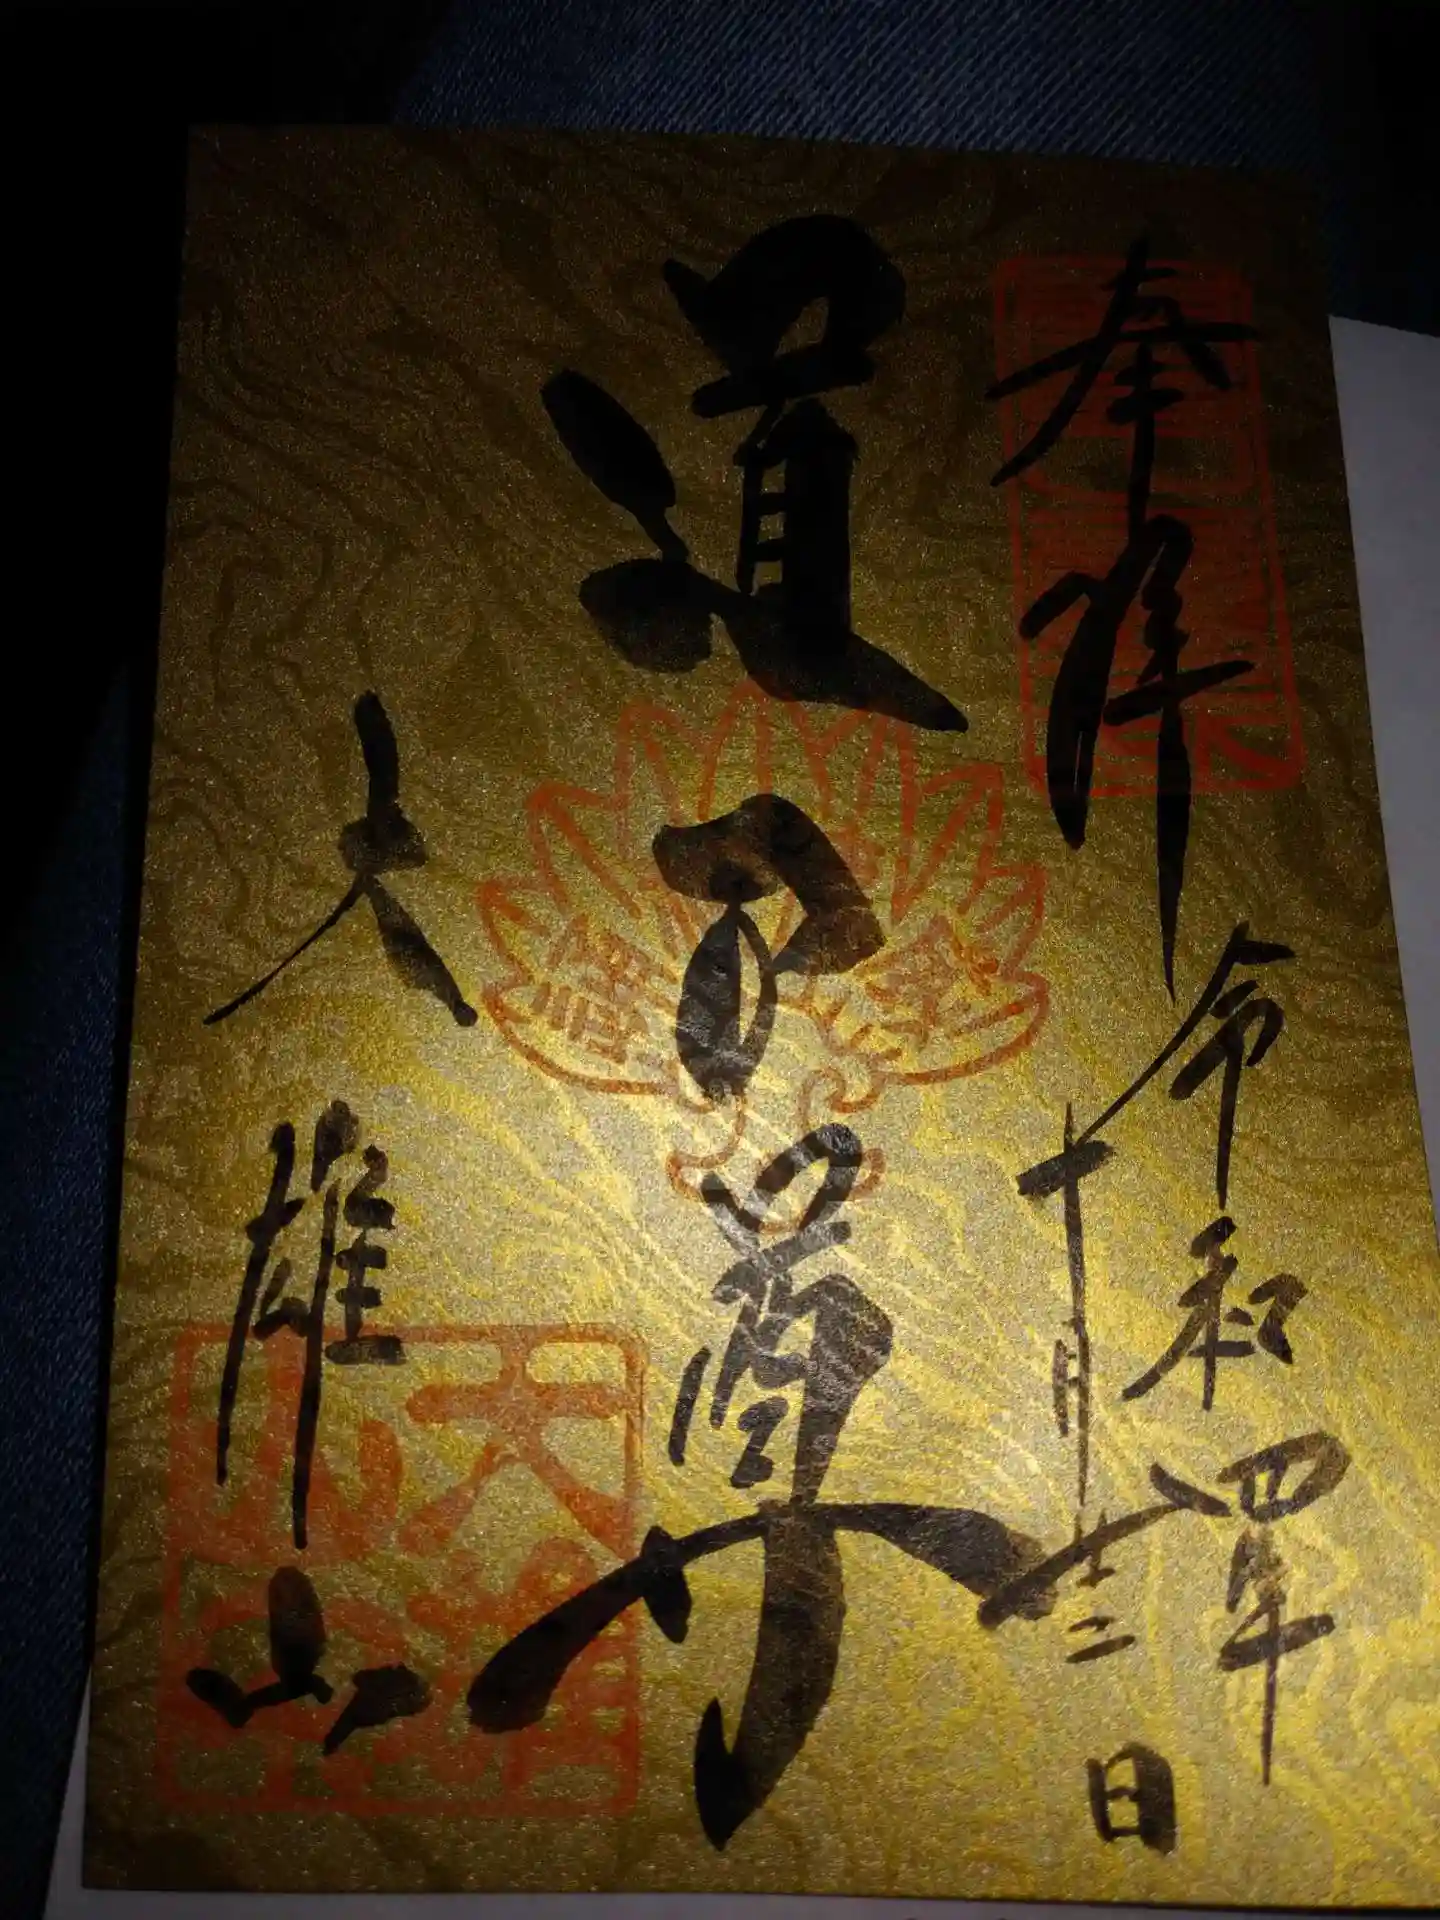 奉拝
令和四年
十月 日
道了尊
大雄山